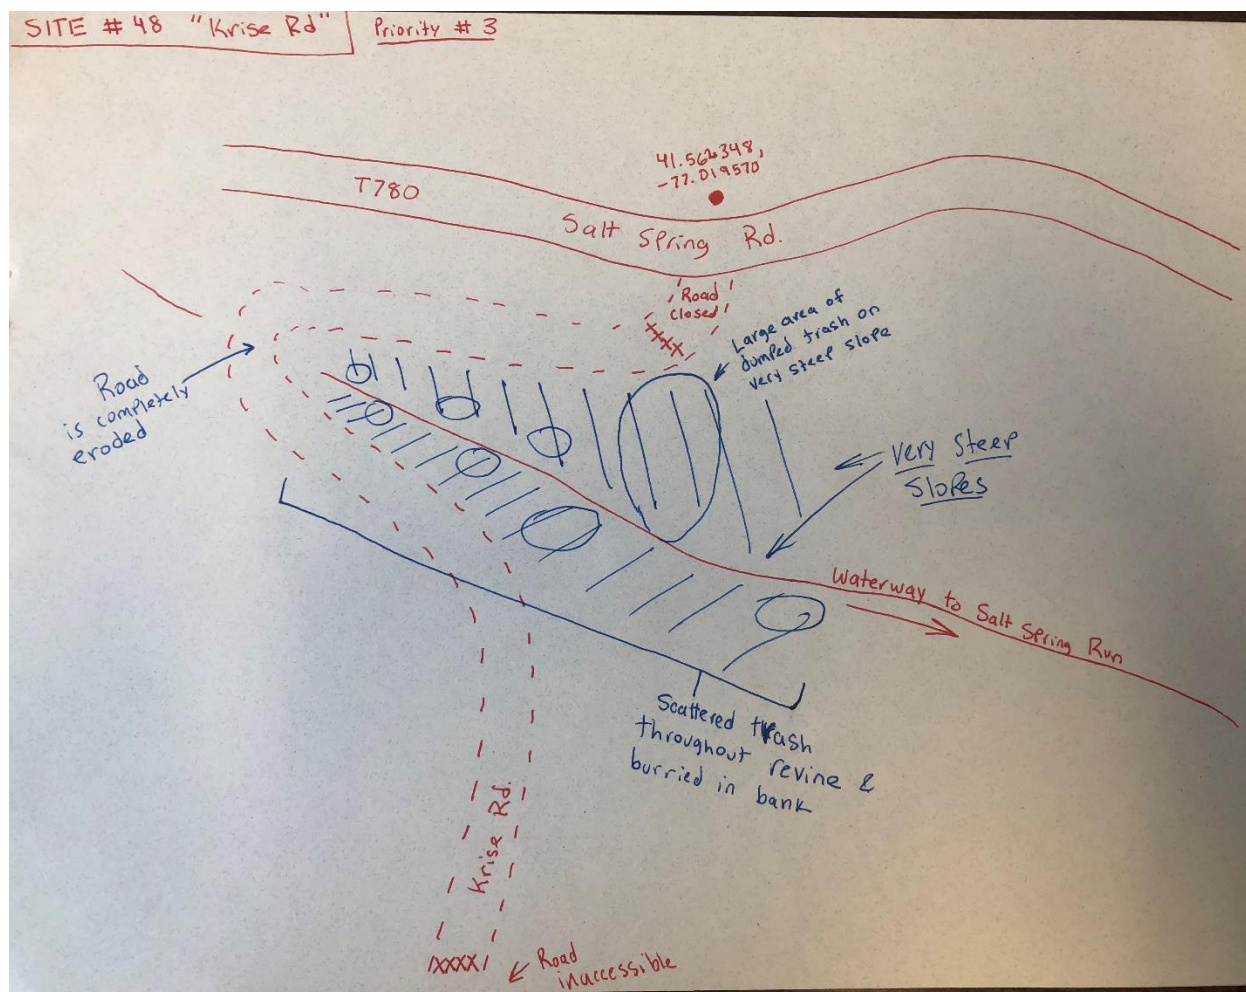 SITE # 48 "Krise Rd"
Priority # 3
41.562348,
-77.019570
T780
Salt Spring Rd.
Road
closed
XXXX
Large area of
dumped trash on
very steep slope
Road
is completely
eroded
Very Steep
Slopes
Waterway to Salt Spring Run
Scattered trash
throughout revine &
burried in bank
Krise Rd.
XXXX
Road
inaccessible